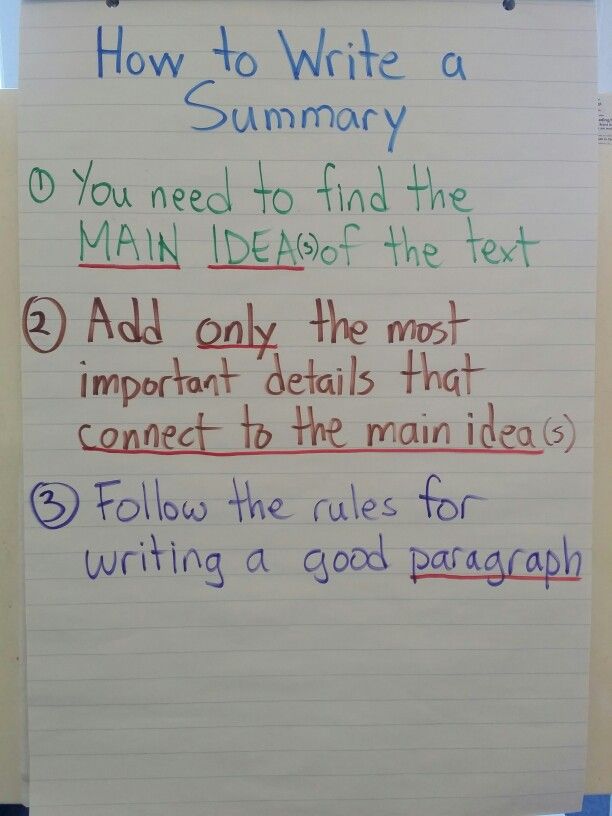 How to Write a
Summary
① You need to find the
MAIN IDEA(s) of the text
② Add only the most
important details that
connect to the main idea(s)
③ Follow the rules for
writing a good paragraph